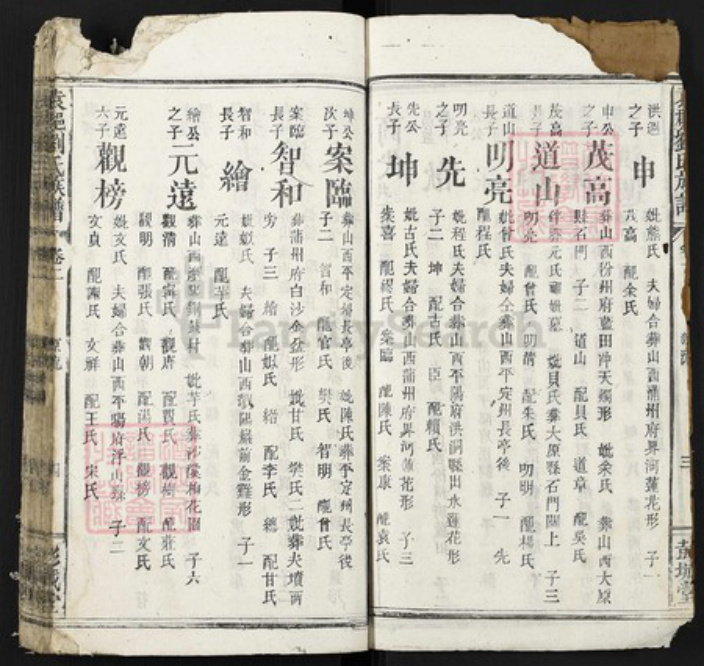 洪遜之子 申
妣熊氏 夫婦合葬山西蒲州府界河蓮花形 子一
茂高 配余氏
申公之子 茂高
葬山西汾州府藍田冲天燭形 妣余氏 葬山西太原
縣石門 子二 道山 配貝氏 道章 配吳氏
茂高長子 道山
妣貝氏葬太原縣石門關上 子三
明亮 配曾氏 明蒨 配朱氏 明明 配楊氏
道山長子 明亮
妣曾氏夫婦仝葬山西平定州長亭後 子一 先
配程氏
明亮之子 先
妣程氏夫婦合葬山西平陽府洪洞縣出水蓮花形
子二 坤 配古氏 臣 配賴氏
先公長子 坤
妣古氏夫婦合葬山西蒲州府界河蓮花形 子三
案喜 配楊氏 案臨 配陳氏 案康 配袁氏
彭城堂
袁邑劉氏族譜 卷二
坤公次子 案臨
葬山西平定州長亭後 妣陳氏葬平定州長亭後
子二 智和 配官氏 樊氏 智明 配曾氏
案臨長子 智和
葬蒲州府白沙金盆形 妣甘氏 樊氏二妣葬夫墳兩
旁 子三 繪 配姬氏 綹 配李氏 總 配甘氏
智和長子 繪
妣姬氏 夫婦合葬山西 金雞形 子一
元遠 配華氏
繪公之子 元遠
葬山西 妣華氏葬 梅花園 子六
觀清 配甯氏 觀唐 配賈氏 觀樹 配莊氏
觀明 配張氏 觀朝 配湯氏 觀榜 配文氏
元遠六子 觀榜
妣文氏 夫婦合葬山西平陽府浮山縣 子二
文貞 配蕭氏 文祥 配王氏 宋氏
彭城堂
FamilySearch